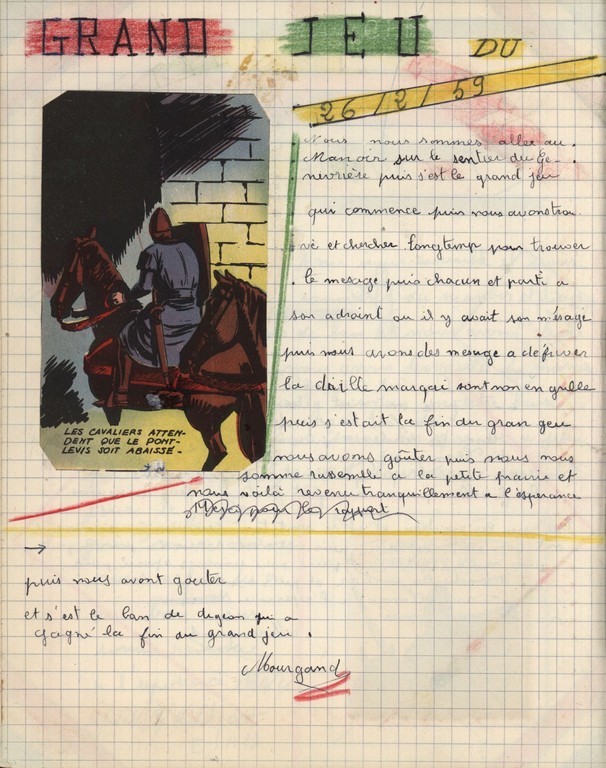 GRAND JEU DU
26/2/59
Nous nous sommes allee au.
Manoir sur le sentier du Ge-
nevrière puis s'est le grand jeu
qui commence puis nous avons trou
vé et chercher longtemp pour trouver
le mesage puis chacun et parti a
son adroint ou il y avait son mésage
puis nous avons des mesuge a défriver
la marquai sont non en grille
puis s'estait la fin du gran geu
nous avons goûter puis nous nous
somme rassemblé a la petite prairie et
nous voilà revenu tranquillement a l'esperance
LES CAVALIERS ATTEN-
DENT QUE LE PONT-
LEVIS SOIT ABAISSÉ -
→
puis nous avont gouter
et s'est le ban de qui a
gagné la fin du grand jeu.
Mourgand